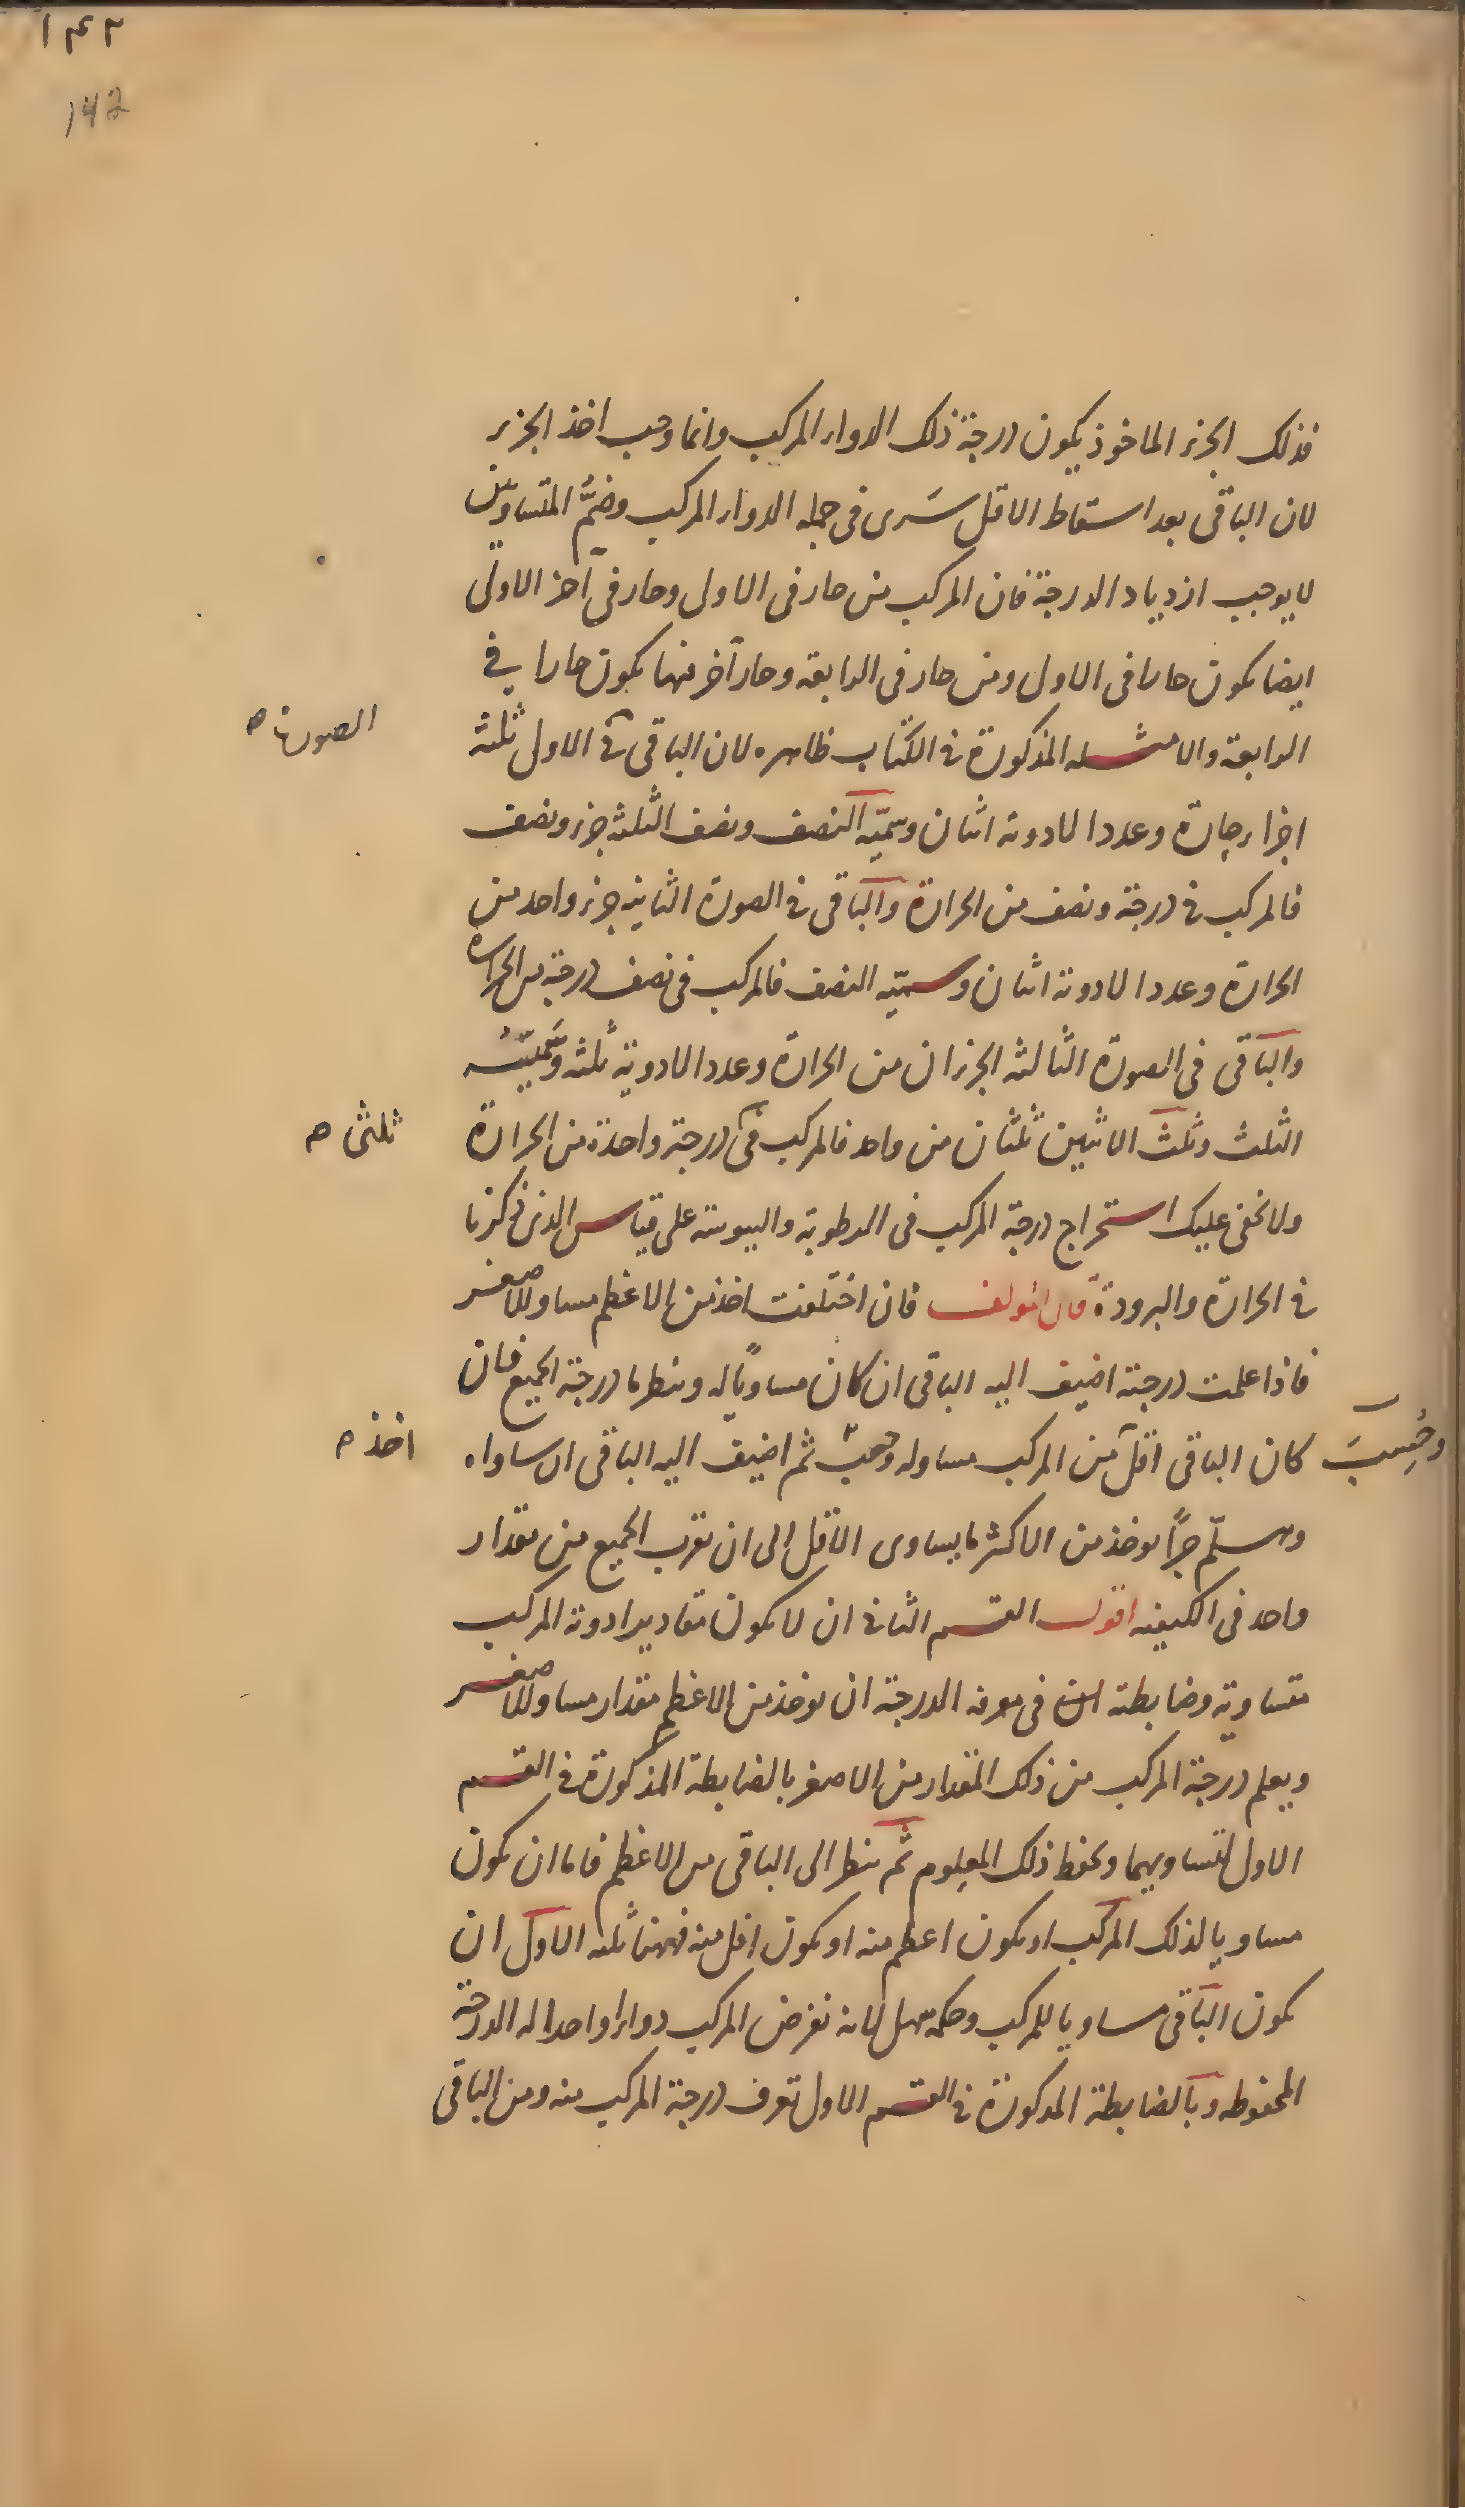 ١٤٢
142
فذلك الجزء الماخوذ يكون درجة ذلك الدواء المركب وانما وجب اخذ الجزء
لان الباقى بعد اسقاط الاقل سَرى فى جمله الدواء المركب وضمُّ المتساويين
لا يوجب ازدياد الدرجة فان المركب من حار فى الاولى وحار فى آخر الاولى
ايضا يكون حارا فى الاولى ومن حار فى الرابعة وحار آخر منها يكون حارا فى
الرابعة والامثله المذكورة فى الكتاب ظاهره لان الباقى فى الاول ثلثة
الصورة صح
اجزاء حارة وعدد الادوية اثنان وسمِيّه النصف ونصف الثلثة جزء ونصف
فالمركب فى درجة ونصف من الحرارة والباقى فى الصورة الثانية جزء واحد من
الحرارة وعدد الادوية اثنان وسميّه النصف فالمركب فى نصف درجة من الحرارة
والباقى فى الصورة الثالثه الجزءان من الحرارة وعدد الادوية ثلثه وسَميّه
الثلث وثلث الاثنين ثلثان من واحد فالمركب فى درجة واحدة من الحرارة
ثلثى صح
ولا يخفى عليك استخراج درجة المركب فى الرطوبة واليبوسة على قياس الذى ذكرنا
فى الحرارة والبرودة قال المولف فان اختلفت اخذ من الاعظم مساو للاصغر
فاذا علمت درجته اضيف اليه الباقى ان كان مساويًا له وينظر ما درجة الجميع فان
كان الباقى اقل من المركب مساوله وحسب ثم اضيف اليه الباقى ان ساواه
وحُسِبَ
اخذ صح
وهلمّ جرًّا يوخذ من الاكثر ما يساوى الاقل الى ان يقرب الجميع من مقدار
واحد فى الكيفيه اقول القسم الثانى ان لا يكون مقادير ادوية المركب
متساوية وضابطته فى معرفه الدرجة ان يوخذ من الاعظم مقدار مساو للاصغر
ويعلم درجة المركب من ذلك المقدار من الاصغر بالضابطة المذكورة فى القسم
الاول لتساويهما ويحفظ ذلك المعلوم ثم ينظر الى الباقى من الاعظم فاما ان يكون
مساويا لذلك المركب او يكون اعظم منه او يكون اقل منه فهنا ثلثه الاول ان
يكون الباقى مساويا للمركب وحكمه سهل لانه نفرض المركب دواء واحدا له الدرجة
المحفوظه وبالضابطة المذكورة فى القسم الاول تعرف درجة المركب منه ومن الباقى